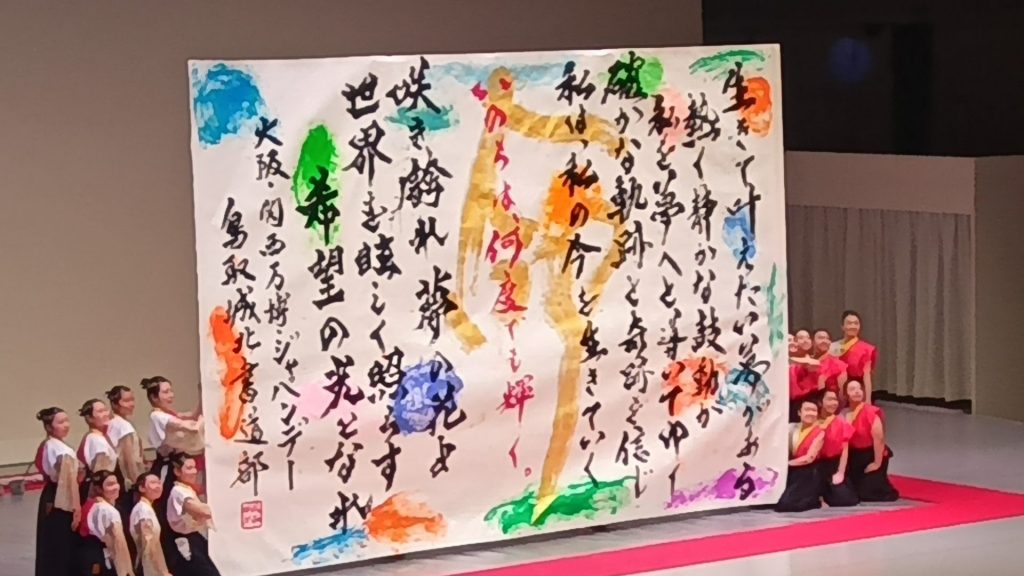 生きて叶えたい夢がある
熱く静かな鼓動が
私を夢へと導いてゆく
確かな軌跡と奇跡を信じ
私は、私の今を生きていく
いのちは、何度でも輝く。
咲き誇れ夢の光よ
世界を眩しく照らす
希望の光となれ
大阪・関西万博ジャパンデー
鳥取城北書道部